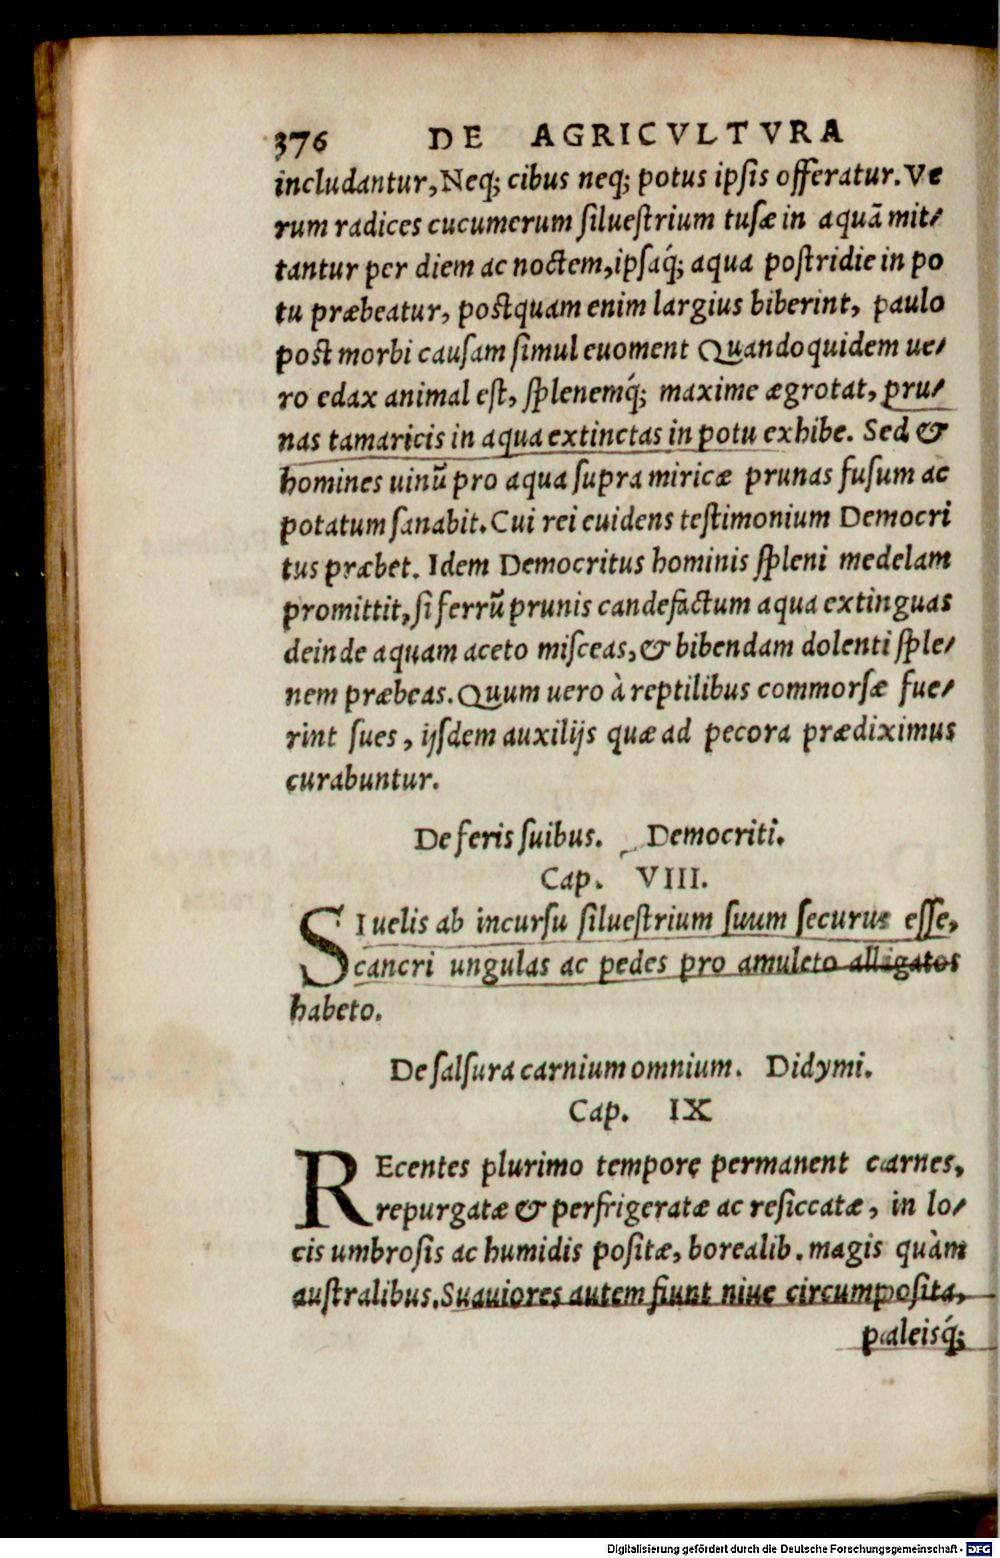 376 DE AGRICVLTVRA
includantur, Neq; cibus neq; potus ipsis offeratur. Ve
rum radices cucumerum siluestrium tusæ in aquā mit/
tantur per diem ac noctem, ipsaq́; aqua postridie in po
tu præbeatur, postquam enim largius biberint, paulo
post morbi causam simul euoment Quandoquidem ue/
ro edax animal est, splenemq́; maxime ægrotat, pru/
nas tamaricis in aqua extinctas in potu exhibe. Sed &
homines uinū pro aqua supra miricæ prunas fusum ac
potatum sanabit. Cui rei euidens testimonium Democri
tus præbet. Idem Democritus hominis spleni medelam
promittit, si ferrū prunis candefactum aqua extinguas
deinde aquam aceto misceas, & bibendam dolenti sple/
nem præbeas. Quum uero à reptilibus commorsæ fue/
rint sues, ijsdem auxilijs quæ ad pecora prædiximus
curabuntur.
De feris suibus. Democriti.
Cap. VIII.
SI uelis ab incursu siluestrium suum securus esse,
cancri ungulas ac pedes pro amuleto alligatos
habeto.
De salsura carnium omnium. Didymi.
Cap. IX
REcentes plurimo tempore permanent carnes,
repurgatæ & perfrigeratæ ac resiccatæ, in lo/
cis umbrosis ac humidis positæ, borealib. magis quàm
australibus. Suauiores autem fiunt niue circumposita,
paleisq́;
Digitalisierung gefördert durch die Deutsche Forschungsgemeinschaft - DFG